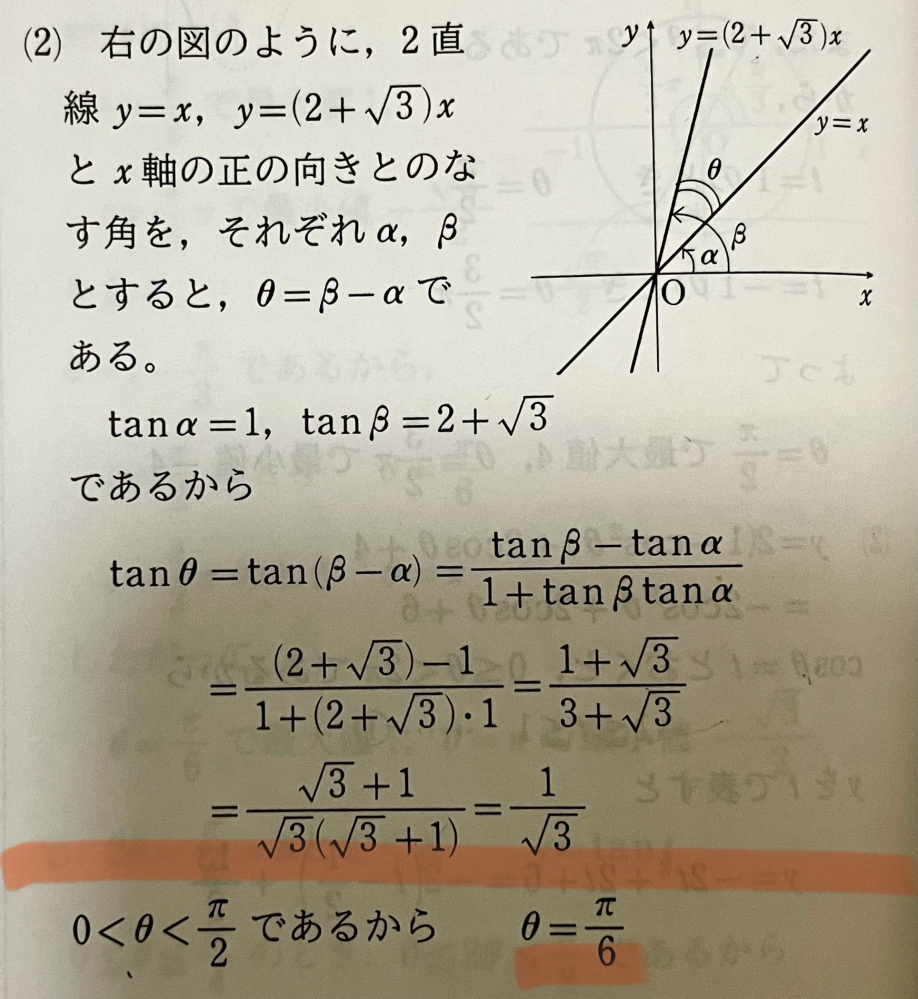 (2) 右の図のように，2直
線 y=x，y=(2+√3)x
と x 軸の正の向きとのな
す角を，それぞれ α，β
とすると，θ=β−α で
ある。
y
y=(2+√3)x
y=x
θ
β
α
O
x
tan α=1，tan β=2+√3
であるから
tan θ=tan(β−α)=\frac{tan β−tan α}{1+tan β tan α}
=\frac{(2+√3)−1}{1+(2+√3)·1}=\frac{1+√3}{3+√3}
=\frac{√3+1}{√3(√3+1)}=\frac{1}{√3}
0<θ<\frac{π}{2} であるから θ=\frac{π}{6}